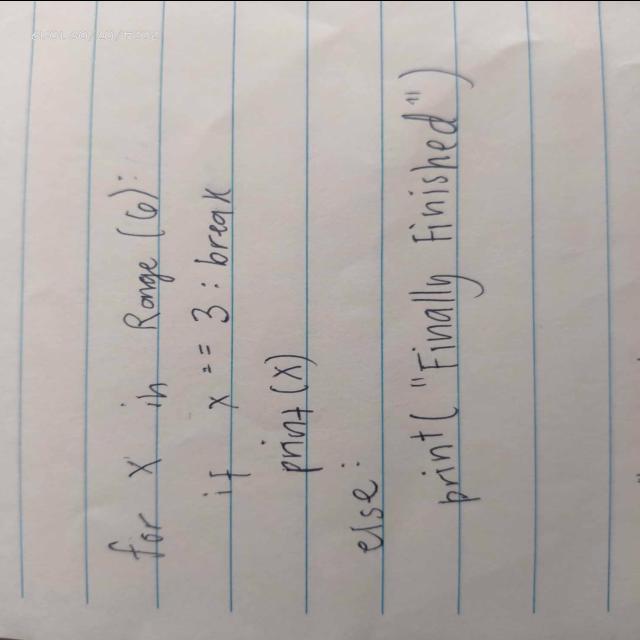 for x in Range (6):
if x == 3 : break
print (x)
else:
print ( "Finally Finished" )